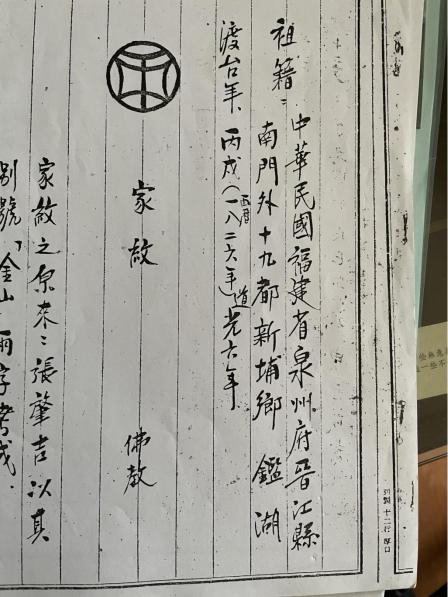 祖籍：中華民國福建省泉州府晉江縣
南門外十九都新埔鄉 鑑湖
渡台年、丙戌（西曆一八二六年）道光六年
家敘 佛教
家敘之原來：張肇吉以其
別號「金山」兩字考成、
十二行